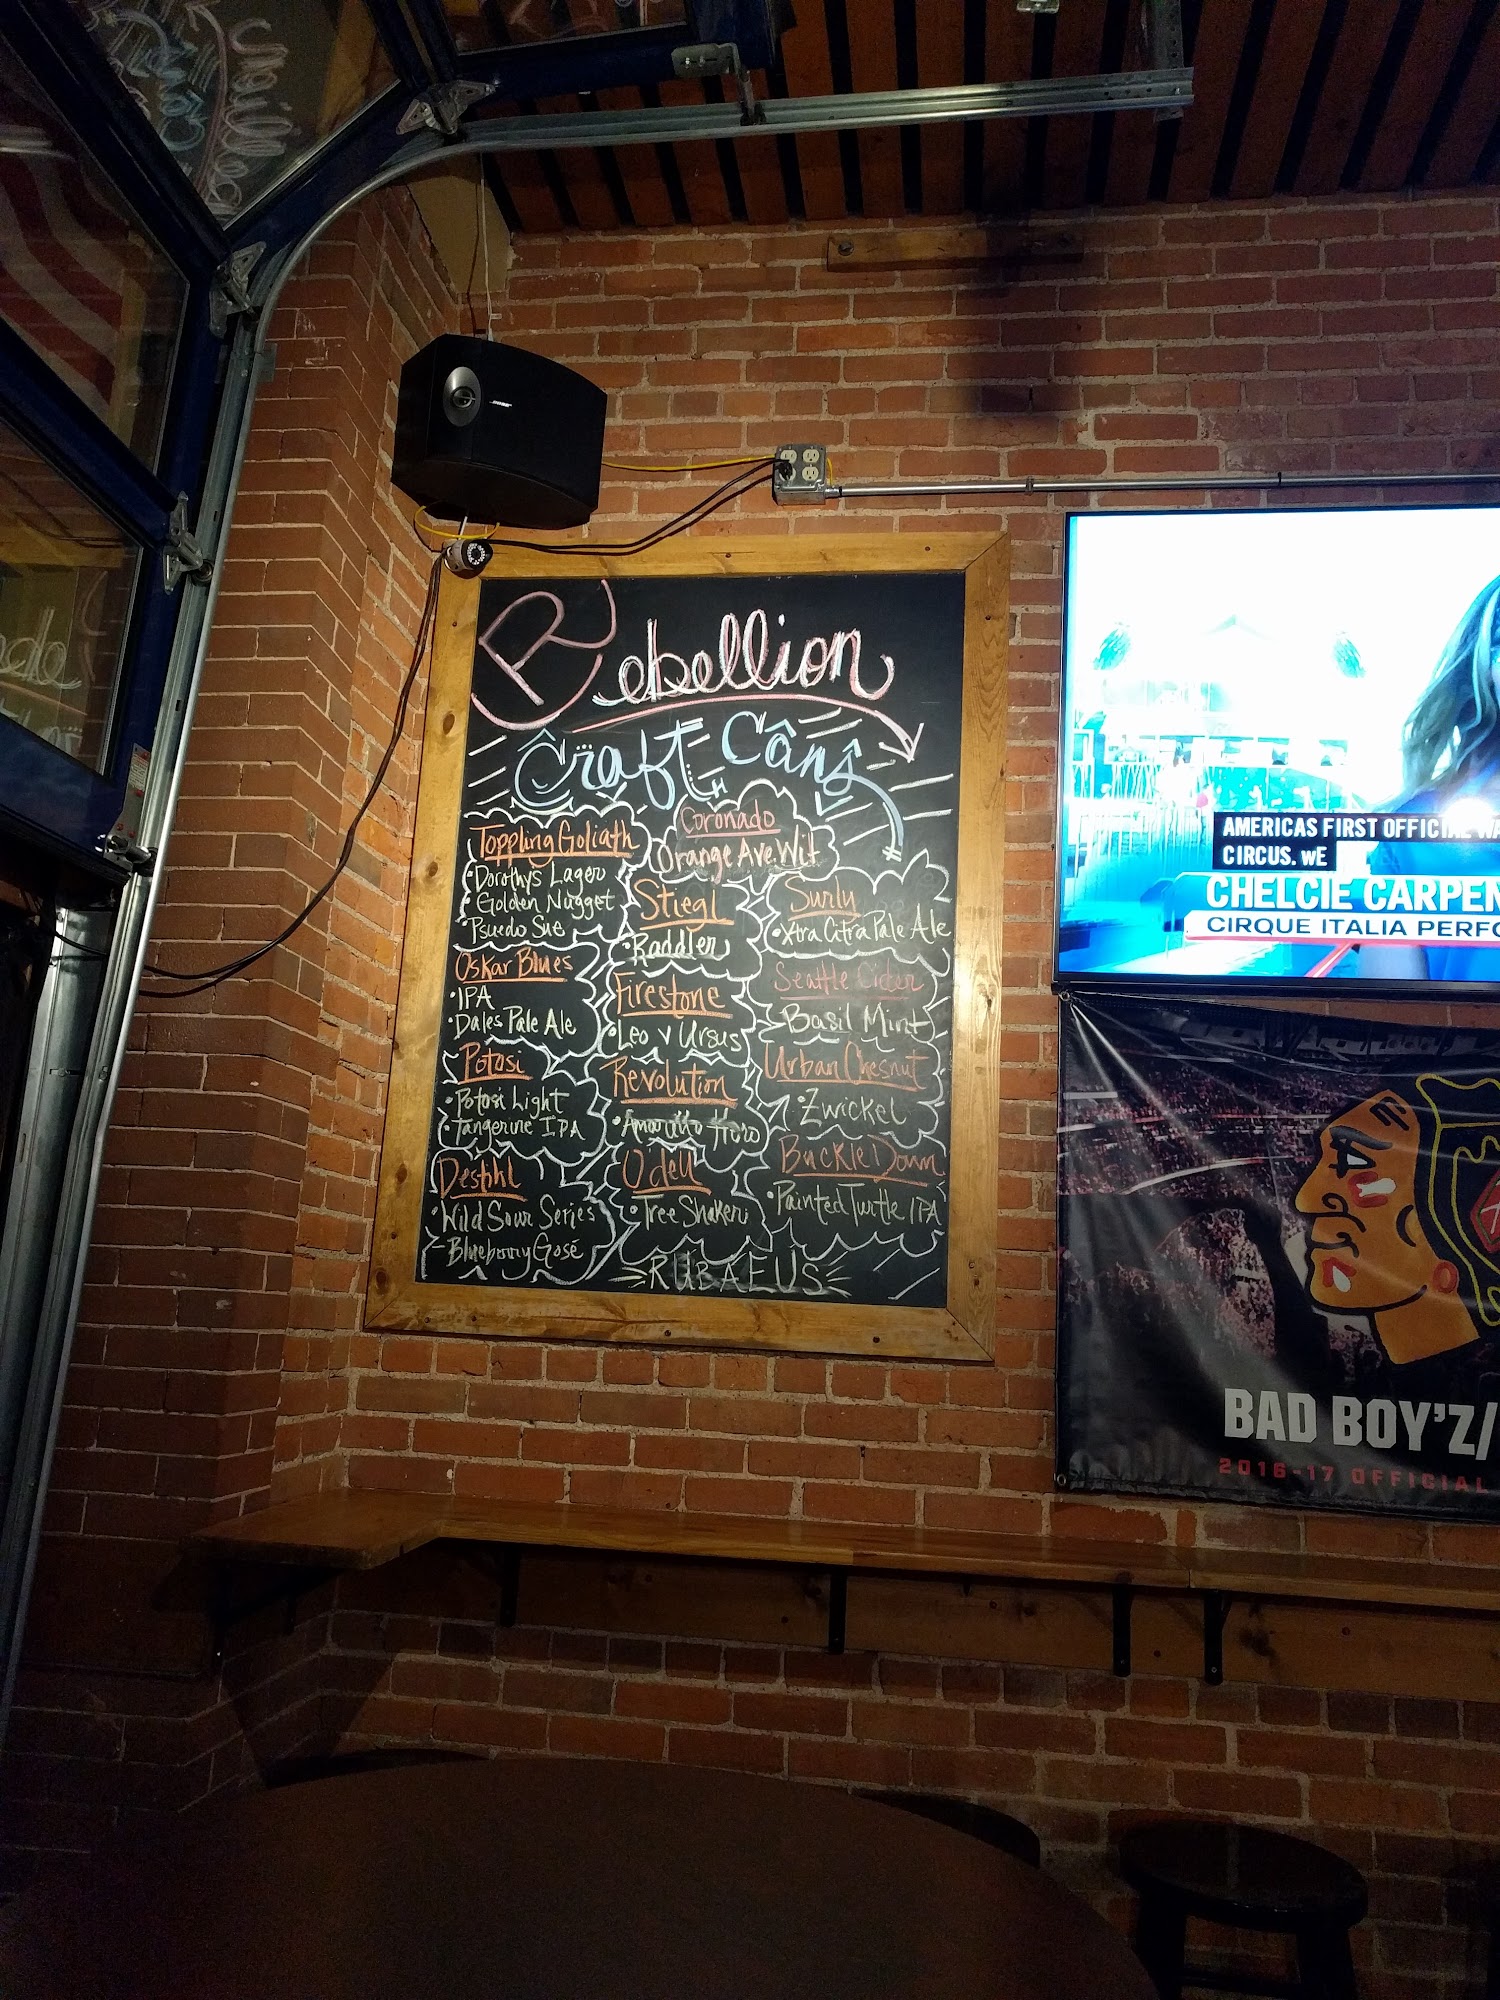 BOSE
Rebellion
Craft Cans
Toppling Goliath
• Dorothy's Lager
• Golden Nugget
• Psuedo Sue
Oskar Blues
• IPA
• Dales Pale Ale
Potosi
• Potosi Light
• Tangerine IPA
Destihl
• Wild Sour Series
- Blueberry Gosé
Coronado
Orange Ave Wit
Stiegl
• Raddler
Firestone
• Leo v Ursus
Revolution
• Amarillo Hero
O'dell
• Tree Shaker
RUBAEUS
Surly
• Xtra Citra Pale Ale
Seattle Cider
Basil Mint
Urban Chesnut
• Zwickel
Buckle Down
• Painted Turtle IPA
AMERICAS FIRST OFFICIAL WA
CIRCUS. WE
CHELCIE CARPEN
CIRQUE ITALIA PERFO
BAD BOY'Z/
2016-17 OFFICIAL